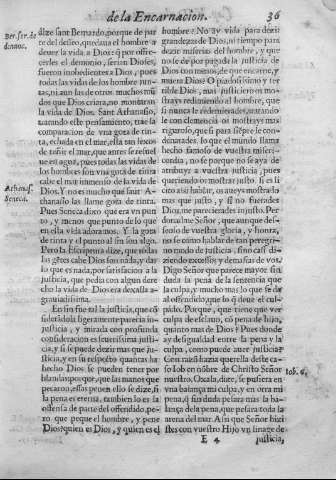 de la Encarnacion. 36
Ber. ser. de
dize sant Bernardo, porque de par
te del desseo, quedaua el hombre a
deuer la vida a Dios: q por offre-
cerles el demonio, serian Dioses,
fueron inobedientes a Dios, pues
todas las vidas de los hombres jun-
tas, ni aun las de otros muchos mū
dos que Dios criara, no montaran
la vida de Dios. Sant Athanasio,
tocando este pensamiento, trae la
comparacion de vna gota de tin-
ta, echada en el mar, ella tan lexos
de teñir el mar, que antes se resuel
ue en agua, pues todas las vidas de
los hombres son vna gota de tinta
cabe el mar immenso de la vida de
Dios. Y no es mucho que sant A-
Athanas.
Seneca.
thanasio las llame gota de tinta.
Pues Seneca dixo que era vn pun
to, y menos que punto de lo que
en ella vida adoramos. Y la gota
de tinta y el punto al fin son algo.
Pero la Escriptura dize, que todas
las gentes cabe Dios son nada, y da-
do que es nada, por satisfacion a la
justicia, pedia con algun dere
cho la vida de Dios era descalla a-
gratiadissima.
En fin fue la justicia, que cō
siderādola ligeramente parecia in-
justicia, y mirada con profunda
consideracion es seuerissima justi-
cia, y si se puede dezir mas que ju-
sticia, y en su respecto quantas ha
hecho Dios se pueden tener por
blandas porque, que las manos que
pecaron, essas pechen esso se dize, si
la pena es eterna, tambien lo es la
offensa de parte del offendido, pe-
ro que peque el hombre, y pene
Dios: quien es Dios, y quien es el
hombre? No ay vida para dezir
grandezas de Dios, ni tiempo para
dezir miserias del hombre, y que
no se de por pagada la justicia de
Dios con menos, de que encarne, y
muera Dios? O justicierissimo y ter
rible Dios, mas justiciero os mo-
strays redimiendo al hombre, que
si nunca le redimierades, vsando
le con clemencia os mostrays mas
riguroso, que si para siēpre le con-
denarades. lo que el mundo llama
hecho famoso de vuestra miseri-
cordia, no se porque no se aya de
atribuyr a vuestra justicia, pues
queriendo os mostrar justo. Si es li
cito assi hablar, os aueys mostrado
mas que justo, y si no fuerades
Dios, me pareciera des injusto. Per-
doname Señor, que aunque des-
seoso de vuestra gloria, y honra,
no se como hablar de tan peregri-
no modo de justicia, sino casi di-
ziendo excessos, y demasias de vos.
Digo Señor que parece mayor sin
duda la pena de la sentencia que
la culpa, y mucho mas lo que se da
al offendido, que lo q̄ deue el cul-
pado. Porque, que tiene que ver
culpa de esclauo, cō pena de hijo,
quanto mas de Dios? Pues donde
ay desigualdad entre la pena y la
culpa, como puede auer justicia?
Con razō haria querella deste ca-
so Iob en nōbre de Christo Señor
Iob. 6.
nuestro. Oxala, dize, se pusiera en
vna balança mi culpa, y en otra mi
pena, q̄ sin duda pesara mas la ba-
lança de la pena, que pesara toda la
arena del mar. Assi que Señor hizi
stes con vuestro Hijo vn linage de
E 4 justicia,